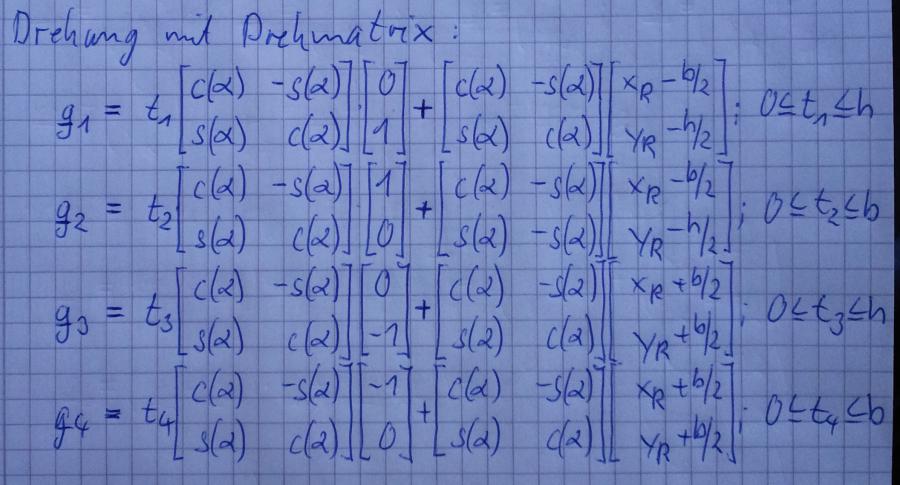 Drehung mit Drehmatrix :
g₁ = t₁ [c(α) -s(α); s(α) c(α)] [0; 1] + [c(α) -s(α); s(α) c(α)] [x_R - b/2; y_R - h/2] ; 0 ≤ t₁ ≤ h
g₂ = t₂ [c(α) -s(α); s(α) c(α)] [1; 0] + [c(α) -s(α); s(α) -s(α)] [x_R - b/2; y_R - h/2] ; 0 ≤ t₂ ≤ b
g₃ = t₃ [c(α) -s(α); s(α) c(α)] [0; -1] + [c(α) -s(α); s(α) c(α)] [x_R + b/2; y_R + b/2] ; 0 ≤ t₃ ≤ h
g₄ = t₄ [c(α) -s(α); s(α) c(α)] [-1; 0] + [c(α) -s(α); s(α) c(α)] [x_R + b/2; y_R + b/2] ; 0 ≤ t₄ ≤ b